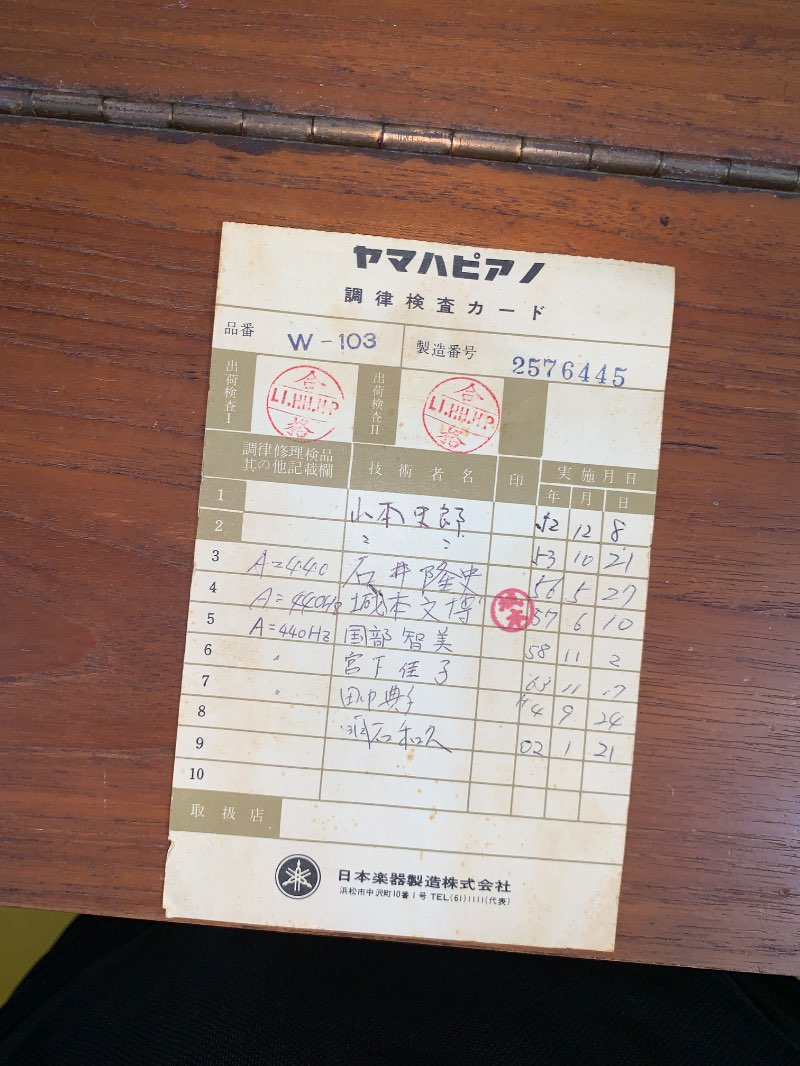 ヤマハピアノ
調律検査カード
品番 W-103 製造番号 2576445
出荷検査I 合格 出荷検査II 合格
調律修理検品其の他記載欄 技術者名 印 実施月日
年 月 日
1 山本史郎 52 12 8
2 〃 〃 53 10 21
3 A=440 石井隆史 56 5 27
4 A=440Hz 城本文博 57 6 10
5 A=440Hz 国部智美 58 11 2
6 〃 宮下佳子 63 11 17
7 〃 田中典子 H4 9 24
8 明石和久 02 1 21
9
10
取扱店
日本楽器製造株式会社
浜松市中沢町10番1号 TEL(61)1111(代表)